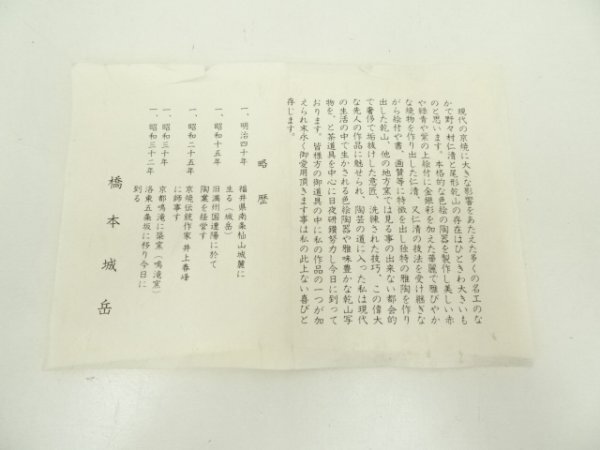 現代の京焼に大きな影響をあたえた多くの名工のな
かで野々村仁清と尾形乾山の存在はひときわ大きいも
のと思います。本格的な色絵の陶器を製作し美しい赤
や緑青や紫の上絵付に金銀彩を加えた華麗で雅びやか
な焼物を作り出した仁清、又仁清の技法を受け継ぎな
がら絵付や書、画賛等に特徴を出し独特の雅陶を作り
出した乾山、他の地方窯では見る事の出来ない都会的
で奢侈で垢抜けした意匠、洗練された技巧、この偉大
な先人の作品に魅せられ、陶芸の道に入った私は現代
の生活の中で生かされる色絵陶器や雅味豊かな乾山写
物を、と茶道具を中心に日夜研鑽努力し今日に到って
おります。皆様方の御道具の中に私の作品の一つが加
えられ末永く御愛用頂きます事は私の此上ない喜びと
存じます。
略歴
一、明治四十年 福井県南条杣山城麓に
生る（城岳）
一、昭和十五年 旧満州国遼陽に於て
陶業を経営す
一、昭和二十五年 京焼伝統作家 井上春峰
に師事す
一、昭和三十年 京都鳴滝に築窯（鳴滝窯）
一、昭和三十二年 洛東五条坂に移り今日に
到る
橋本城岳